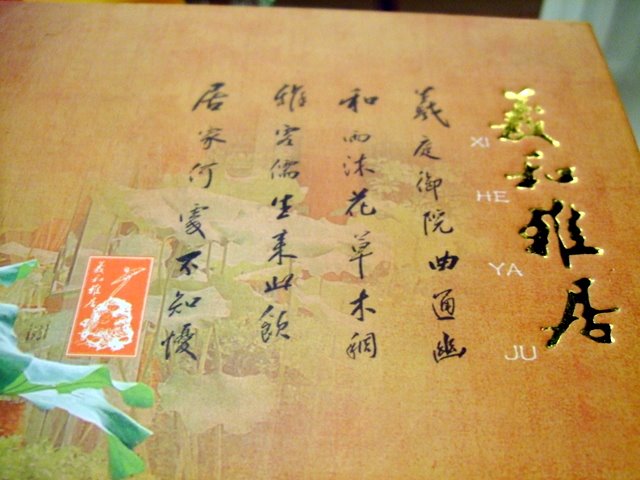 羲和雅居
XI HE YA JU
羲庭御院曲通幽
和雨沐花草木稠
雅客儒生来此饮
居家何处不知忧
羲和雅居